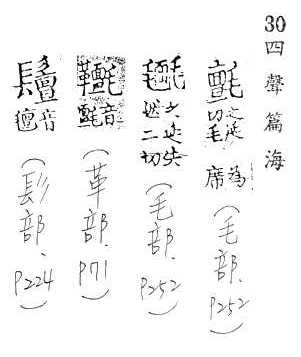 30四聲篇海
氈之延切毛為席（毛部、P252）
之延失延二切（毛部、P252）
音氈（革部、P71）
音（髟部、P224）